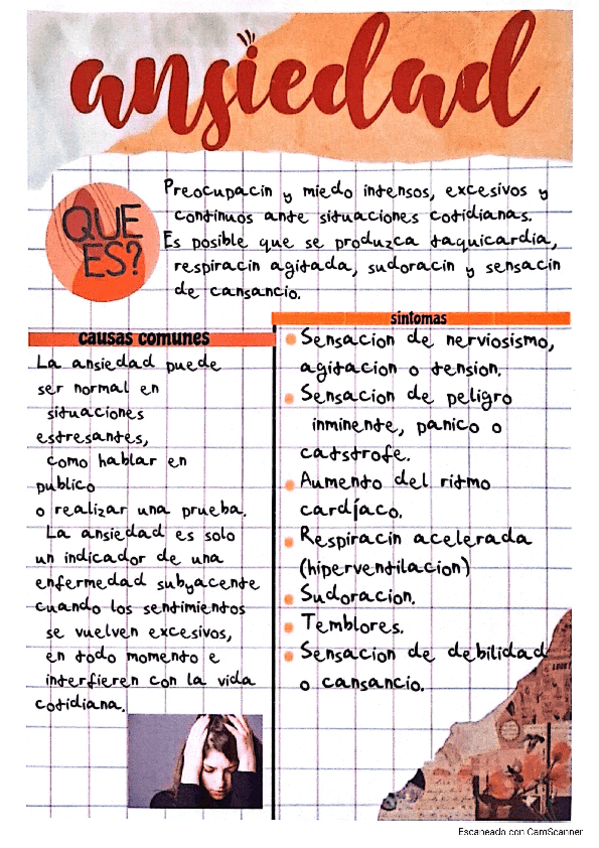 ansiedad
QUE
ES?
Preocupacin y miedo intensos, excesivos y
continuos ante situaciones cotidianas.
Es posible que se produzca taquicardia,
respiracin agitada, sudoracin y sensacin
de cansancio.
causas comunes
La ansiedad puede
ser normal en
situaciones
estresantes,
como hablar en
publico
o realizar una prueba.
La ansiedad es solo
un indicador de una
enfermedad subyacente
cuando los sentimientos
se vuelven excesivos,
en todo momento e
interfieren con la vida
cotidiana.
sintomas
Sensacion de nerviosismo,
agitacion o tension.
Sensacion de peligro
inminente, panico o
catstrofe.
Aumento del ritmo
cardíaco.
Respiracin acelerada
(hiperventilacion)
Sudoracion.
Temblores.
Sensacion de debilidad
o cansancio.
Escaneado con CamScanner